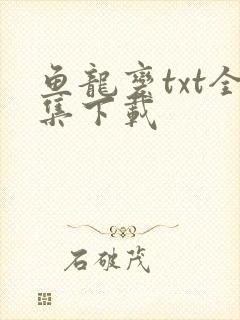 鱼龍變txt全
集下載
石破茂